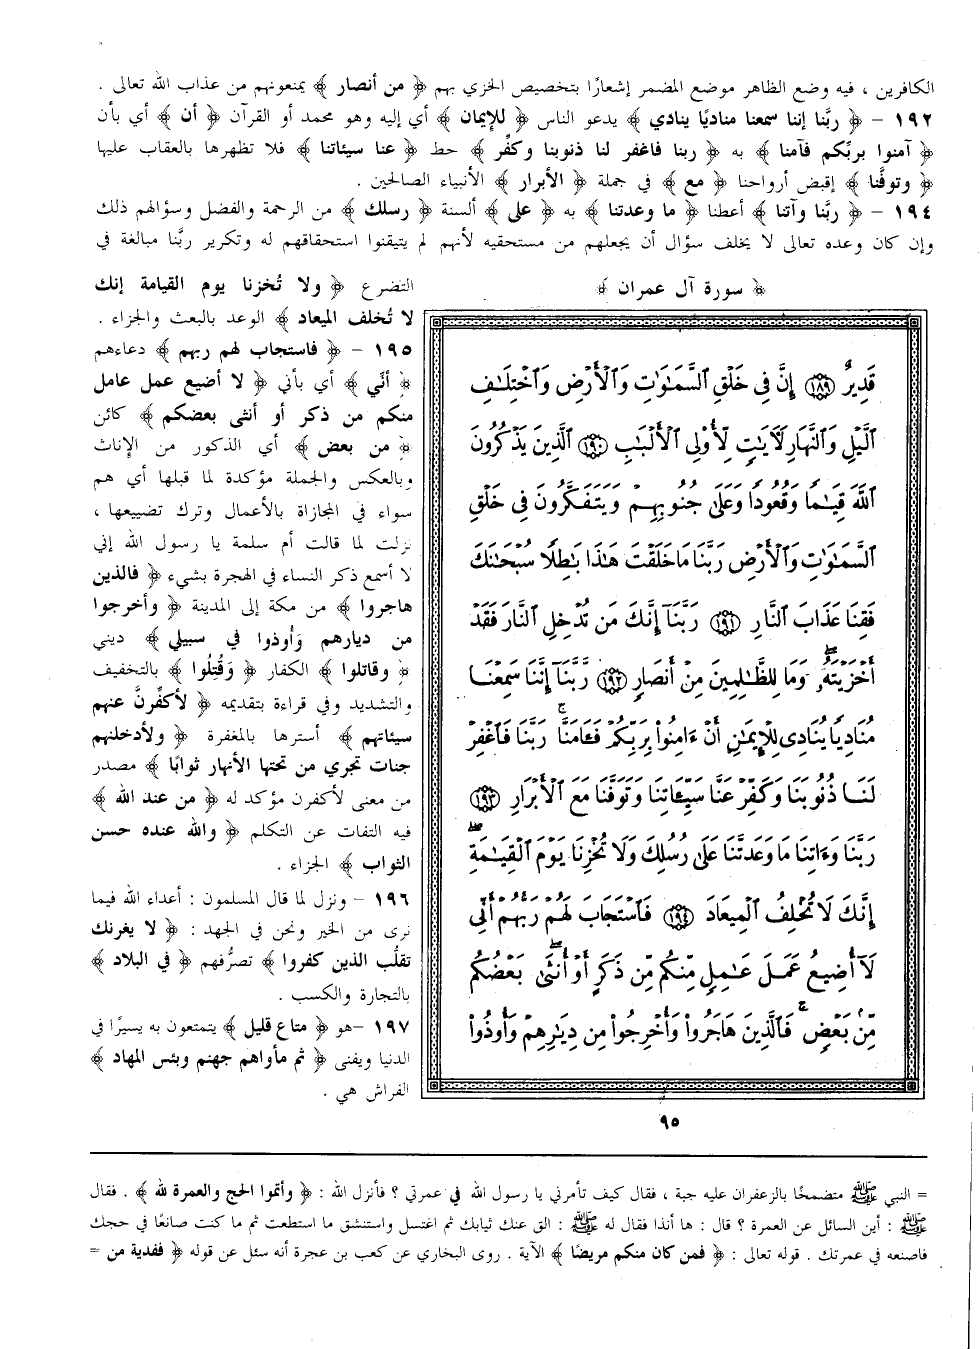 الكافرين ، فيه وضع الظاهر موضع المضمر إشعارًا بتخصيص الخزي بهم ﴿ من أنصار ﴾ يمنعونهم من عذاب الله تعالى .
١٩٢ – ﴿ ربَّنا إننا سمعنا مناديًا ينادي ﴾ يدعو الناس ﴿ للإيمان ﴾ أي إليه وهو محمد أو القرآن ﴿ أن ﴾ أي بأن
﴿ آمنوا بربِّكم فآمنا ﴾ به ﴿ ربنا فاغفر لنا ذنوبنا وكفِّر ﴾ حط ﴿ عنا سيئاتنا ﴾ فلا تظهرها بالعقاب عليها
﴿ وتوفَّنا ﴾ إقبض أرواحنا ﴿ مع ﴾ في جملة ﴿ الأبرار ﴾ الأنبياء الصالحين .
١٩٤ – ﴿ ربَّنا وآتنا ﴾ أعطنا ﴿ ما وعدتنا ﴾ به ﴿ على ﴾ ألسنة ﴿ رسلك ﴾ من الرحمة والفضل وسؤالهم ذلك
وإن كان وعده تعالى لا يخلف سؤال أن يجعلهم من مستحقيه لأنهم لم يتيقنوا استحقاقهم له وتكرير ربَّنا مبالغة في
﴿ سورة آل عمران ﴾
قَدِيرٌ ١٨٩ إِنَّ فِي خَلْقِ السَّمَٰوَٰتِ وَالْأَرْضِ وَاخْتِلَٰفِ
الَّيْلِ وَالنَّهَارِ لَآيَٰتٍ لِّأُولِي الْأَلْبَٰبِ ١٩٠ الَّذِينَ يَذْكُرُونَ
اللَّهَ قِيَٰمًا وَقُعُودًا وَعَلَىٰ جُنُوبِهِمْ وَيَتَفَكَّرُونَ فِي خَلْقِ
السَّمَٰوَٰتِ وَالْأَرْضِ رَبَّنَا مَا خَلَقْتَ هَٰذَا بَٰطِلًا سُبْحَٰنَكَ
فَقِنَا عَذَابَ النَّارِ ١٩١ رَبَّنَآ إِنَّكَ مَن تُدْخِلِ النَّارَ فَقَدْ
أَخْزَيْتَهُۥ وَمَا لِلظَّٰلِمِينَ مِنْ أَنصَارٍ ١٩٢ رَّبَّنَآ إِنَّنَا سَمِعْنَا
مُنَادِيًا يُنَادِي لِلْإِيمَٰنِ أَنْ ءَامِنُوا بِرَبِّكُمْ فَـَٔامَنَّا رَبَّنَا فَاغْفِرْ
لَنَا ذُنُوبَنَا وَكَفِّرْ عَنَّا سَيِّـَٔاتِنَا وَتَوَفَّنَا مَعَ الْأَبْرَارِ ١٩٣
رَبَّنَا وَءَاتِنَا مَا وَعَدتَّنَا عَلَىٰ رُسُلِكَ وَلَا تُخْزِنَا يَوْمَ الْقِيَٰمَةِ
إِنَّكَ لَا تُخْلِفُ الْمِيعَادَ ١٩٤ فَاسْتَجَابَ لَهُمْ رَبُّهُمْ أَنِّي
لَآ أُضِيعُ عَمَلَ عَٰمِلٍ مِّنكُم مِّن ذَكَرٍ أَوْ أُنثَىٰ بَعْضُكُم
مِّن بَعْضٍ فَالَّذِينَ هَاجَرُوا وَأُخْرِجُوا مِن دِيَٰرِهِمْ وَأُوذُوا
٩٥
التضرع ﴿ ولا تُخزنا يوم القيامة إنك
لا تُخلف الميعاد ﴾ الوعد بالبعث والجزاء .
١٩٥ – ﴿ فاستجاب لهم ربهم ﴾ دعاءهم
﴿ أنِّي ﴾ أي بأني ﴿ لا أضيع عمل عامل
منكم من ذكر أو أنثى بعضكم ﴾ كائن
﴿ من بعض ﴾ أي الذكور من الإناث
وبالعكس والجملة مؤكدة لما قبلها أي هم
سواء في المجازاة بالأعمال وترك تضييعها ،
نزلت لما قالت أم سلمة يا رسول الله إني
لا أسمع ذكر النساء في الهجرة بشيء ﴿ فالذين
هاجروا ﴾ من مكة إلى المدينة ﴿ وأخرجوا
من ديارهم وَأُوذوا في سبيلي ﴾ ديني
﴿ وقاتلوا ﴾ الكفار ﴿ وَقُتِلُوا ﴾ بالتخفيف
والتشديد وفي قراءة بتقديمه ﴿ لأكفِّرنَّ عنهم
سيئاتهم ﴾ أسترها بالمغفرة ﴿ ولأدخلنهم
جنات تجري من تحتها الأنهار ثوابًا ﴾ مصدر
من معنى لأكفرن مؤكد له ﴿ من عند الله ﴾
فيه التفات عن التكلم ﴿ والله عنده حسن
الثواب ﴾ الجزاء .
١٩٦ – ونزل لما قال المسلمون : أعداء الله فيما
نرى من الخير ونحن في الجهد : ﴿ لا يغرنك
تقلُّب الذين كفروا ﴾ تصرُّفهم ﴿ في البلاد ﴾
بالتجارة والكسب .
١٩٧ –هو ﴿ متاع قليل ﴾ يتمتعون به يسيرًا في
الدنيا ويفنى ﴿ ثم مأواهم جهنم وبئس المهاد ﴾
الفراش هي .
= النبي ﷺ متضمخًا بالزعفران عليه جبة ، فقال كيف تأمرني يا رسول الله في عمرتي ؟ فأنزل الله : ﴿ وأتموا الحج والعمرة لله ﴾ . فقال
ﷺ : أين السائل عن العمرة ؟ قال : ها أنذا فقال له ﷺ : الق عنك ثيابك ثم اغتسل واستنشق ما استطعت ثم ما كنت صانعًا في حجك
فاصنعه في عمرتك . قوله تعالى : ﴿ فمن كان منكم مريضًا ﴾ الآية . روى البخاري عن كعب بن عجرة أنه سئل عن قوله ﴿ ففدية من =